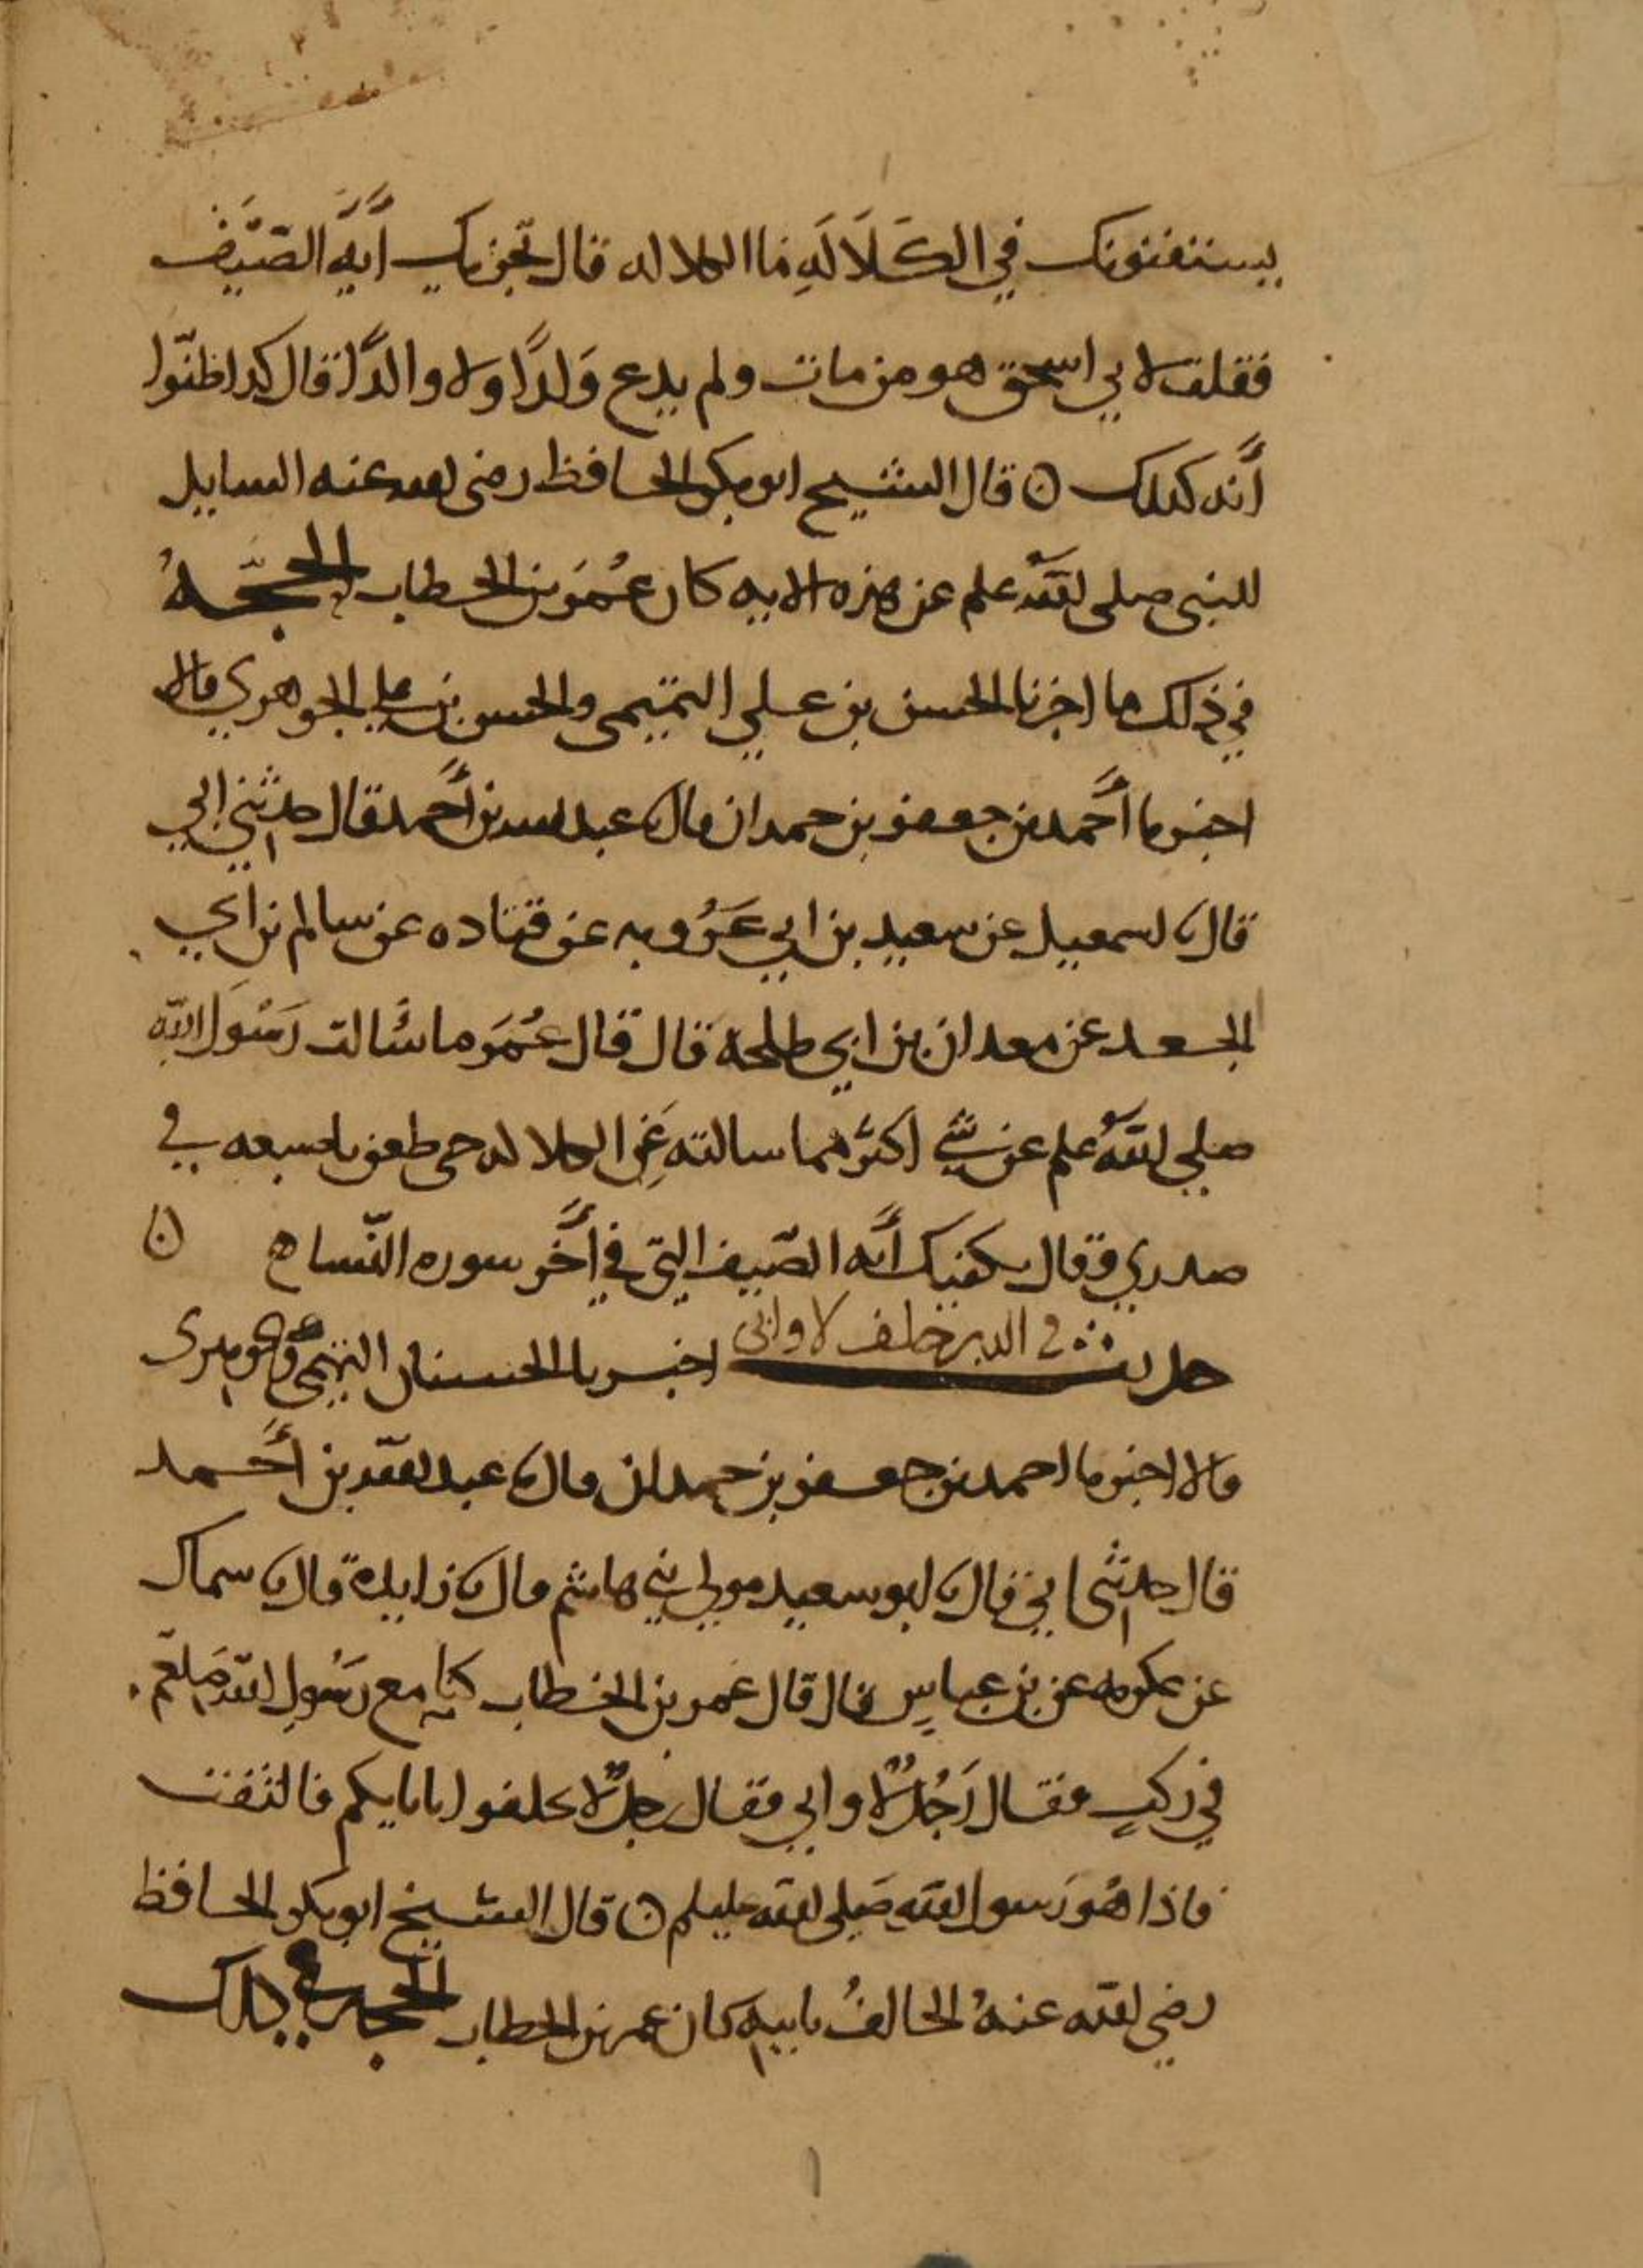 يستفتونك في الكَلَالَةِ فما الكلاله قال تجزيك أَيَةُ الصَّيْف
فقلت لابي اسحق هو من مات ولم يدع وَلدًا ولا والدًا قال كذا ظنّوا
أنه كذلك ن قال الشيخ ابو بكر الحافظ رضى الله عنه السايل
للنبي صلى الله علم عن هذه الايه كان عُمَر بن الخطاب الحجّهُ
في ذلك ما اخبرنا الحسن بن علي التميمى والحسن بن علي الجوهري قالا
اخبرنا أحمد بن جعفر بن حمدان قال ثا عبد الله بن أحمد قال حدثني ابي
قال ثا اسمعيل عن سعيد بن ابي عَرُوبه عن قتاده عن سالم بن ابي
الجعد عن معدان بن ابي طلحه قال قال عُمَر ما سَالت رَسُولَ الله
صلى الله علم عن شي اكثر مما سالته عَنِ الكلاله حتى طعن باصبعه في
صدري وقال يكفيك أيه الصّيف التي في أخر سوره النّسا ه ن
حديث في الذي خلف لا وابى اخبرنا الحسنان التميمى والجوهرى
قالا اخبرنا احمد بن جعفر بن حمدان قال ثا عبد الله بن أحمد
قال حدثنى ابي قال ثا ابو سعيد مولى بني هاشم قال ثا زايدة قال ثا سماك
عن عكرمه عن بن عباسٍ قال قال عُمر بن الخطاب كنا مع رَسُول الله صَلعم
في ركبٍ فقال رَجُلٌ لا وابي فقال رجلٌ لا تحلفوا بابايكم فالتفت
فاذا هُو رَسول الله صَلى الله عليلم ن قال الشيخ ابو بكر الحافظ
رضي الله عنهُ الحالفُ بابيه كان عمر بن الخطاب الحجه في ذلك